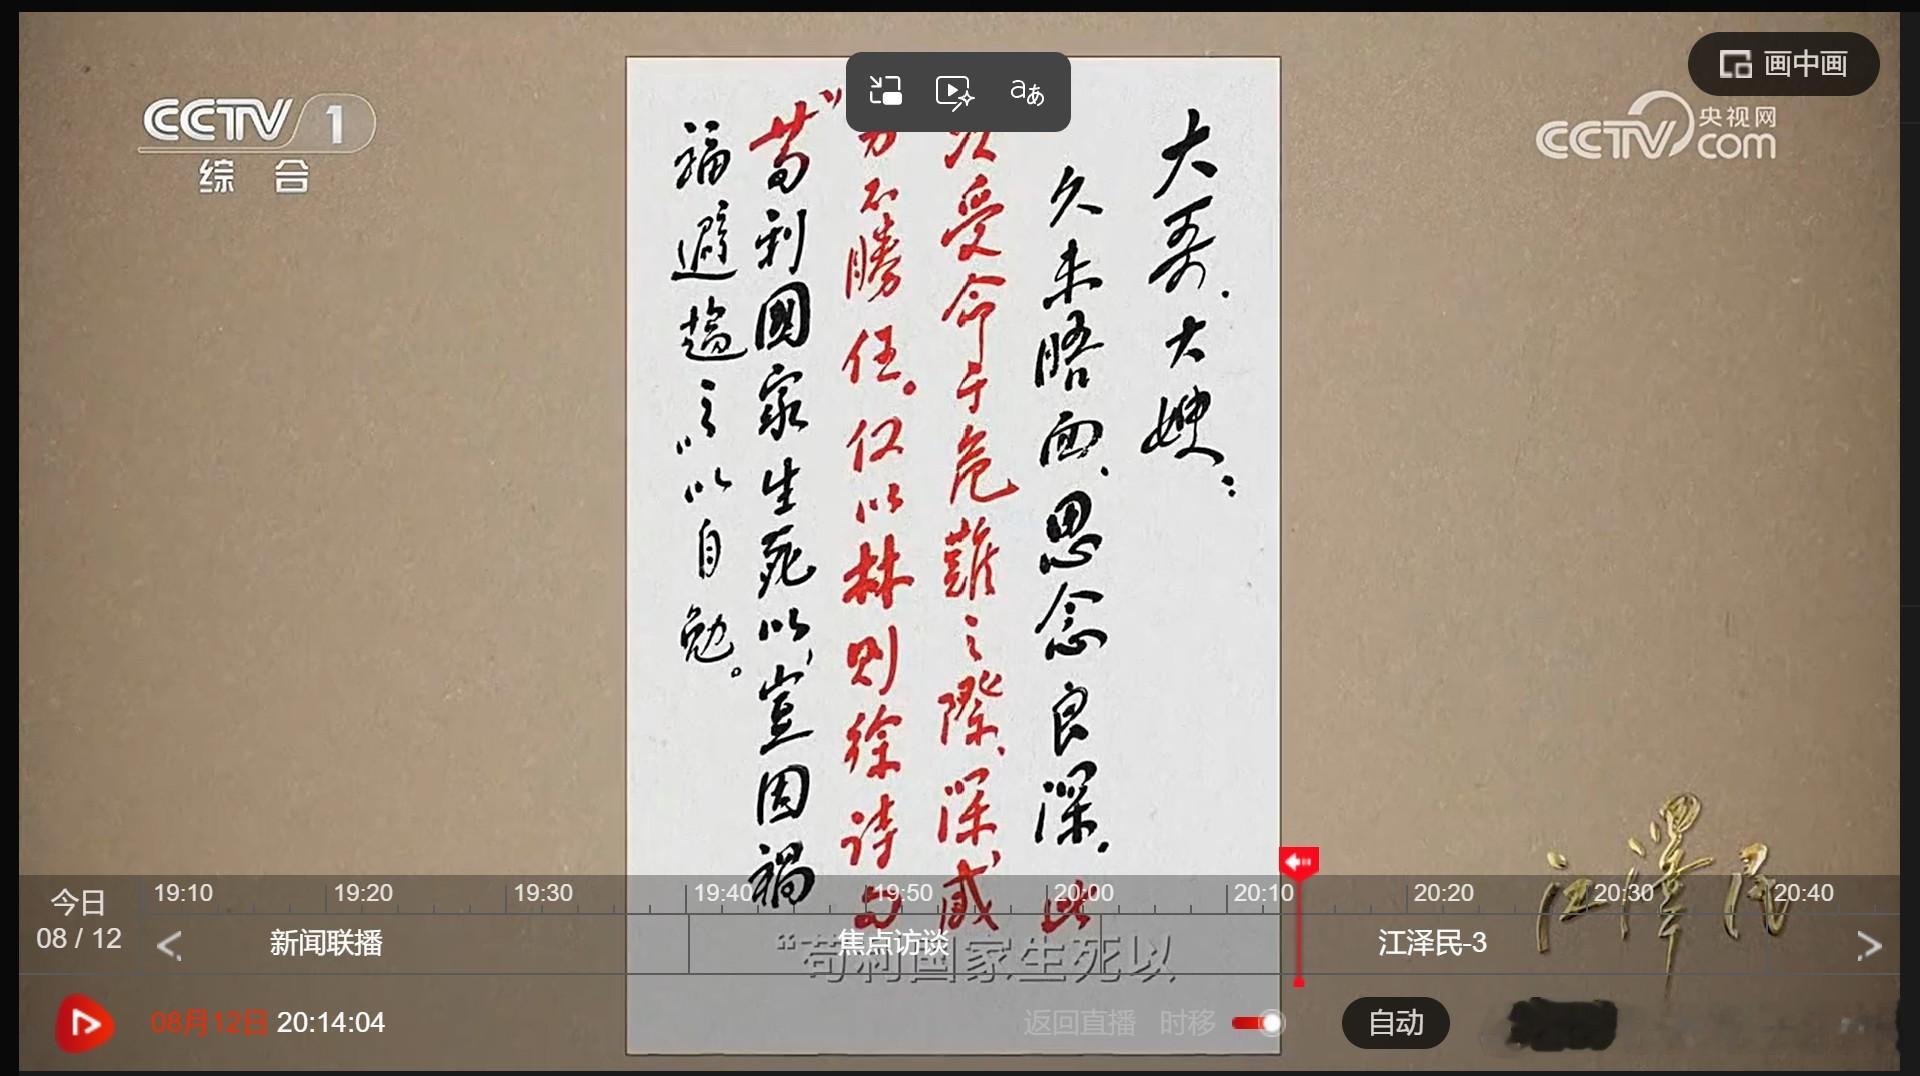 CCTV 1
综合
画中画
CCTV 央视网
com
aあ
大哥.大嫂:
久未晤面、思念良深.此
次受命于危難之際、深感
力不勝任。仅以林则徐詩句
“苟利國家生死以,豈因禍
福避趨之”以自勉。
江澤民
今日
08 / 12
19:10 19:20 19:30 19:40 19:50 20:00 20:10 20:20 20:30 20:40
< 新闻联播 焦点访谈 江泽民-3 >
“苟利国家生死以
08月12日 20:14:04
返回直播 时移 自动